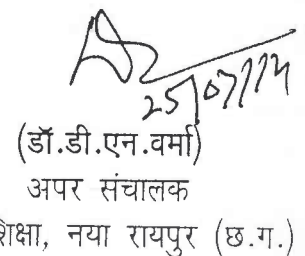 25/07/14
(डॉ.डी.एन.वर्मा)
अपर संचालक
शिक्षा, नया रायपुर (छ.ग.)